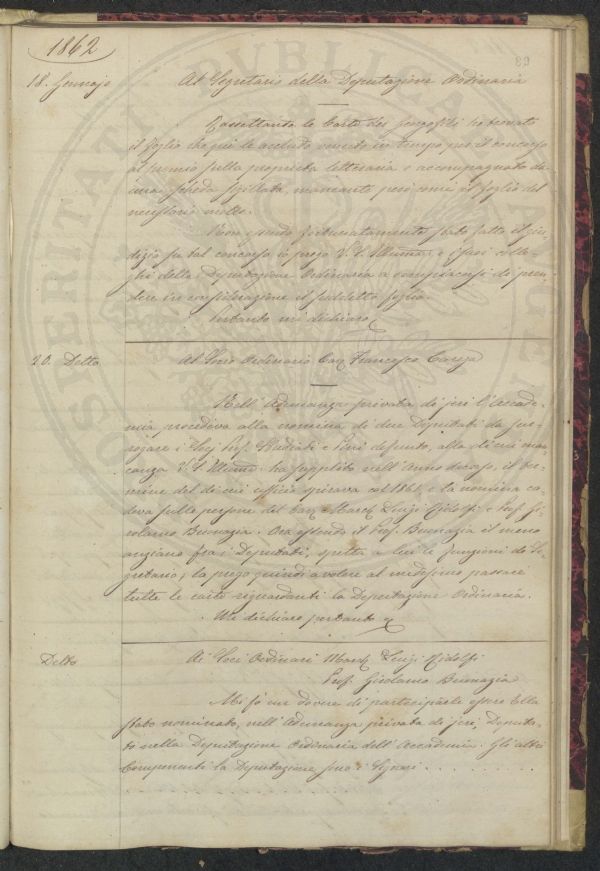 1862
89
18. Gennajo
Al Segretario della Deputazione Ordinaria
Rassettando le Carte dei Georgofili ho trovato
il foglio che qui le accludo venuto in tempo per il concorso
al premio sulla proprietà letteraria e accompagnato da
una scheda sigillata, mancante però come il foglio del
necessario motto.
Non essendo fortunatamente stato fatto il giu-
dizio su tal concorso io prego V. S. Illuma. e i suoi colle-
ghi della Deputazione Ordinaria a compiacersi di pren-
dere in considerazione il suddetto foglio.
Pertanto mi dichiaro
20. Detto
Al Socio Ordinario Cav. Francesco Carega
Nell'Adunanza privata di jeri l'Accade-
mia procedeva alla nomina di due Deputati da sur-
rogare i Socj Prof. Studiati e defunto, alla di cui man-
canza V. S. Illuma. ha supplito nell'anno decorso, il ter-
mine del di cui ufficio spirava col 1861, e la nomina ca-
deva sulle persone del Cav. March. Luigi Ridolfi e Prof. Gi-
rolamo Buonazia. Ora essendo il Prof. Buonazia il meno
anziano fra i Deputati, spetta a lui le funzioni di Se-
gretario; la prego quindi a volere al medesimo passare
tutte le carte riguardanti la Deputazione Ordinaria.
Mi dichiaro pertanto
Detto
Ai Soci Ordinari March. Luigi Ridolfi
Prof. Girolamo Buonazia
Mi fò un dovere di parteciparle essere Ella
stato nominato, nell'Adunanza privata di jeri, Deputa-
to nella Deputazione Ordinaria dell'Accademia. Gli altri
Componenti la Deputazione sono i Signori . . . . . . . . .